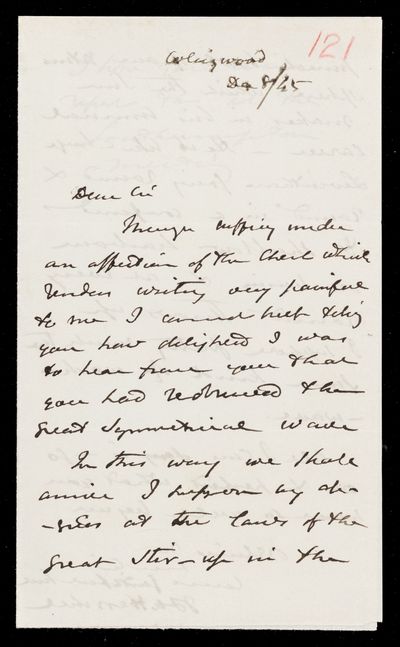 121
Collingwood
De 8/45
Dear Sir
Though suffering under
an affection of the Chest which
renders writing very painful
to me I cannot help telling
you how delighted I was
to hear from you that
you had rediscussed the
Great Symmetrical Wave
In this way we shall
arrive I suppose by de-
-grees at the laws of the
great stir-up in the